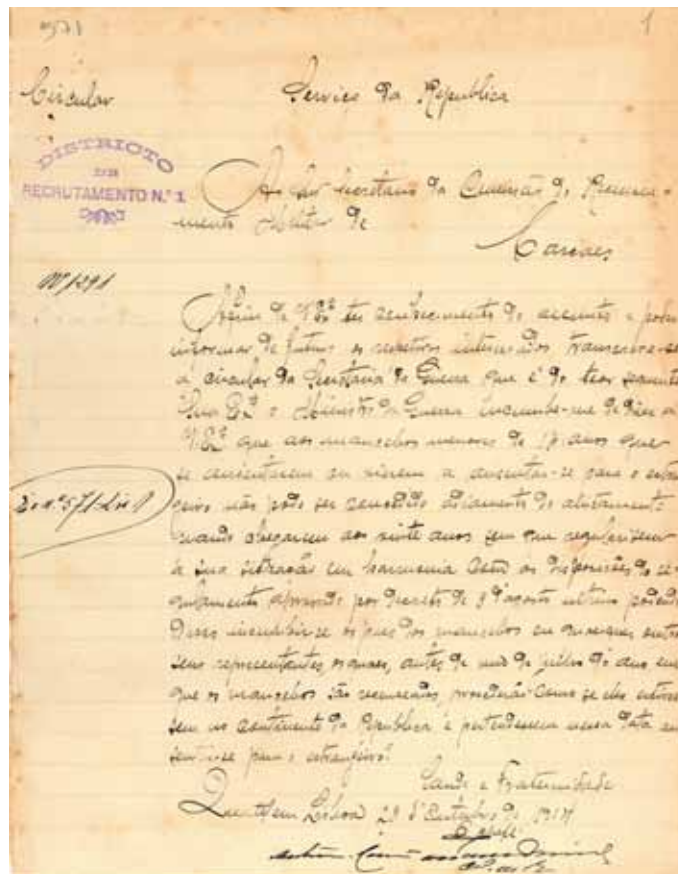 571
1
Circular
Serviço da Republica
DISTRICTO
DE
RECRUTAMENTO N.º 1
Ao Snr Secretario da Comissão de Recensea-
mento Militar de
Cascaes
Nº 1291
Afim de V. Ex.ª ter conhecimento do assumto e poder
informar de futuro os respectivos interessados transcreve-se
a circular da Secretaria da Guerra que é do teor seguinte
"Sua Ex.ª o Ministro da Guerra encumbe-me de dizer a
V. Ex.ª que aos mancebos menores de 17 anos que
se ausentarem ou vierem a ausentar-se para o estran
E. nº 571 L.
geiro não pode ser concedido adiamento do alistamento
quando chegarem aos vinte anos sem que regularisem
a sua situação em harmonia com as disposições do re-
gulamento aprovado por decreto de 9 d'agosto ultimo podendo
disso incumbir-se os paes dos mancebos ou quaesquer outros
seus representantes, os quaes, antes de um de julho do ano em
que os mancebos são recenseados, procederão como se eles estives
sem no continente da Republica e pertendessem nessa data au
sentar-se para o estrangeiro."
Saude e Fraternidade
Quartel em Lisboa 29 d'Outubro de
O Chefe